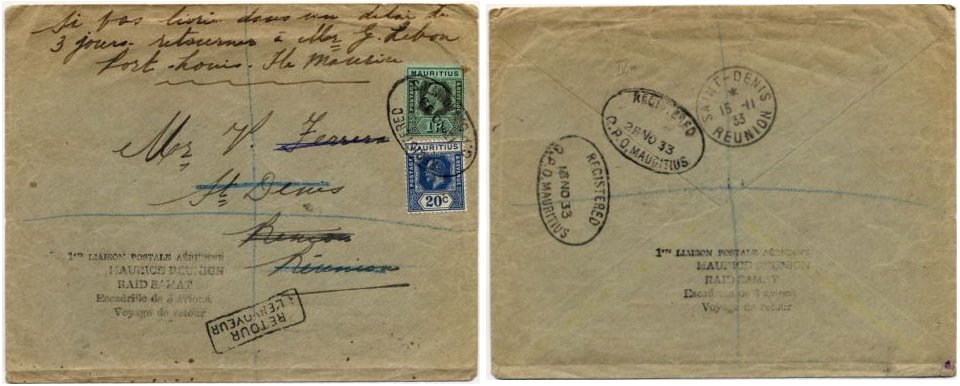 Si pas livré dans un délai de
3 jours. retourner à Mr G. Lebon
Port-Louis. Ile Maurice
MAURITIUS
POSTAGE
& REVENUE
1R
REGISTERED
Mr V.
POSTAGE
& REVENUE
20C
St Denis
Réunion
1re LIAISON POSTALE AÉRIENNE
MAURICE-RÉUNION
RAID SAMAT
Escadrille de 3 avions
Voyage de retour
RETOUR
À L'ENVOYEUR
IVa
SAINT-DENIS
*
15-11
33
RÉUNION
REGISTERED
28 NO 33
G.P.O. MAURITIUS
REGISTERED
18 NO 33
G.P.O. MAURITIUS
1re LIAISON POSTALE AÉRIENNE
MAURICE-RÉUNION
RAID SAMAT
Escadrille de 3 avions
Voyage de retour